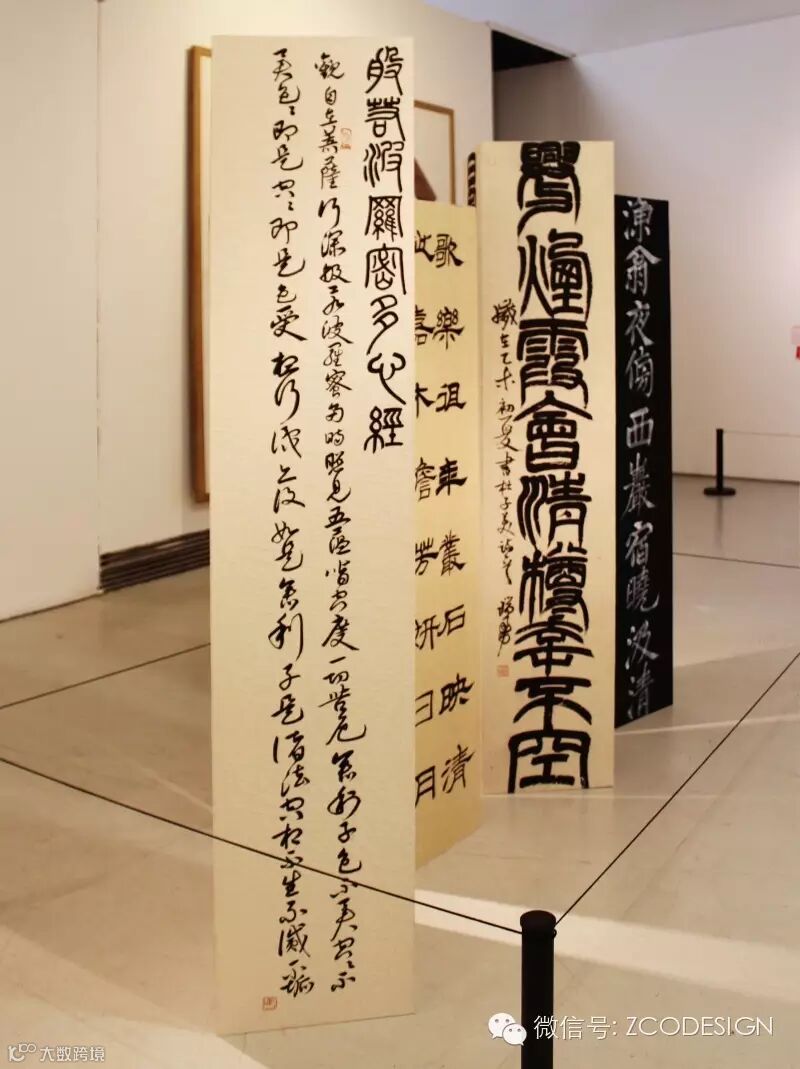 般若波羅密多心經
觀自在菩薩行深般若波羅蜜多時照見五蘊皆空度一切苦厄舍利子色不異空〻不
異色〻即是空〻即是色受想行識亦復如是舍利子是諸法空相不生不滅不垢
歌樂徂年叢石映清
泚嘉木澹芳妍日月
與煙霞會清樽幸不空
歲在乙未初夏書杜子美詩
漁翁夜傍西巖宿曉汲清
微信号: ZCODESIGN
大数跨境